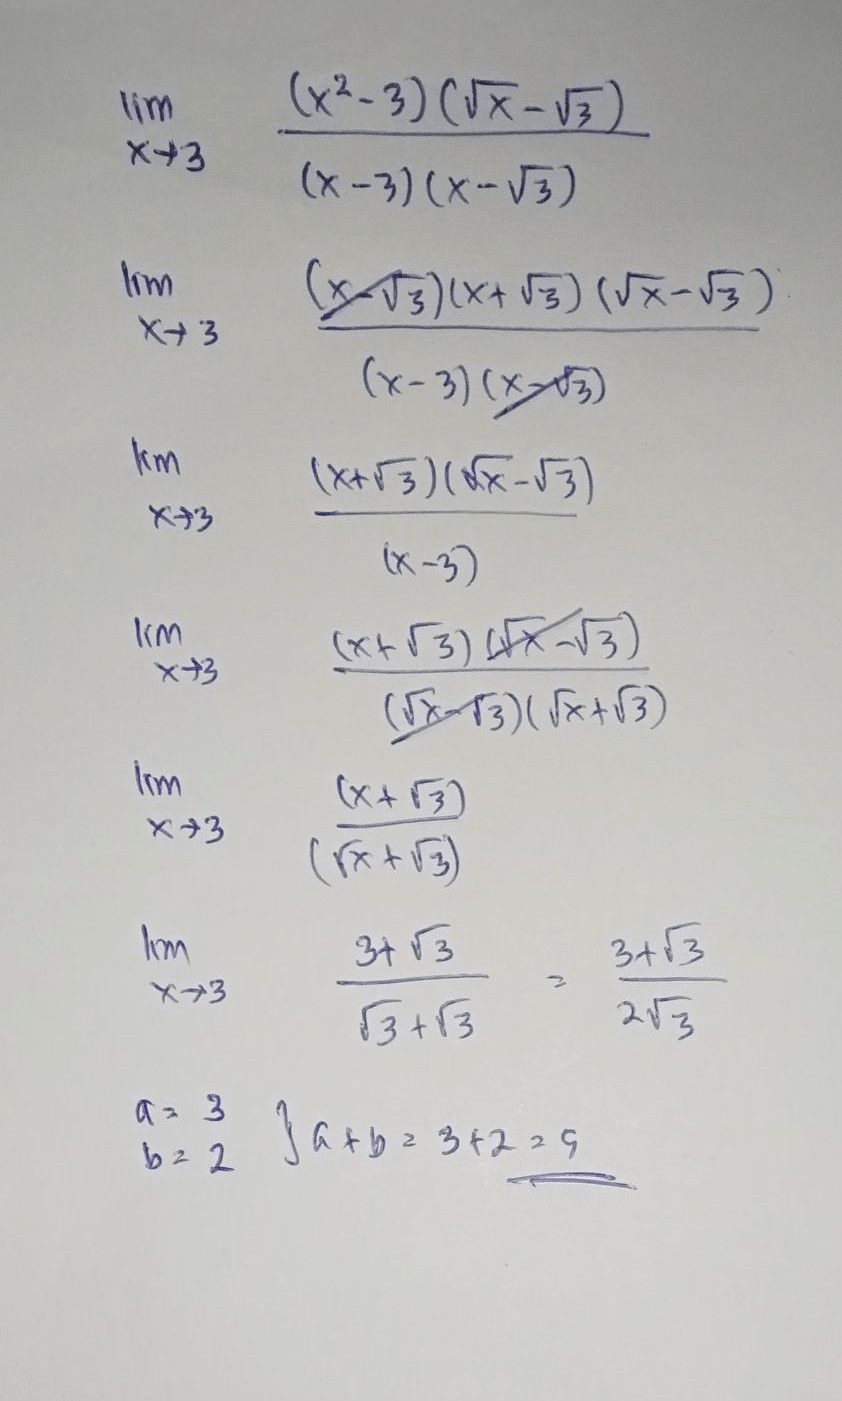 lim x→3 (x²-3)(√x-√3) / (x-3)(x-√3)
lim x→3 (x-√3)(x+√3)(√x-√3) / (x-3)(x-√3)
lim x→3 (x+√3)(√x-√3) / (x-3)
lim x→3 (x+√3)(√x-√3) / (√x-√3)(√x+√3)
lim x→3 (x+√3) / (√x+√3)
lim x→3 3+√3 / √3+√3 = 3+√3 / 2√3
a = 3
b = 2 } a+b = 3+2 = 5